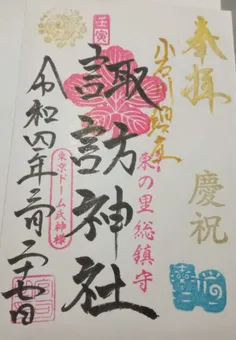 奉拝
慶祝
小石川鎮座
東の里総鎮守
壬寅
諏訪神社
東京ドーム氏神様
令和四年三月二十七日